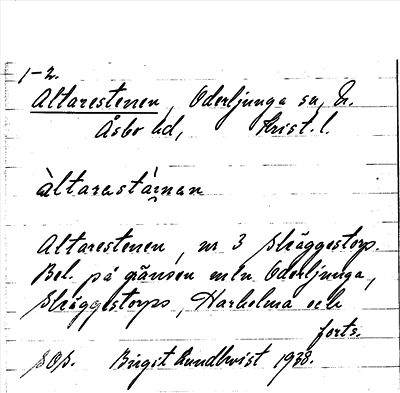 1-2.
Altarestenen, Oderljunga sn, N.
Åsbo hd, Krist. l.
àltarastá̀rnan
Altarestenen, nr 3 Skäggestorp.
Bel. på gränsen mln Oderljunga,
Skäggestorps, Harholma och
forts.
Birgit Lundkvist 1938.